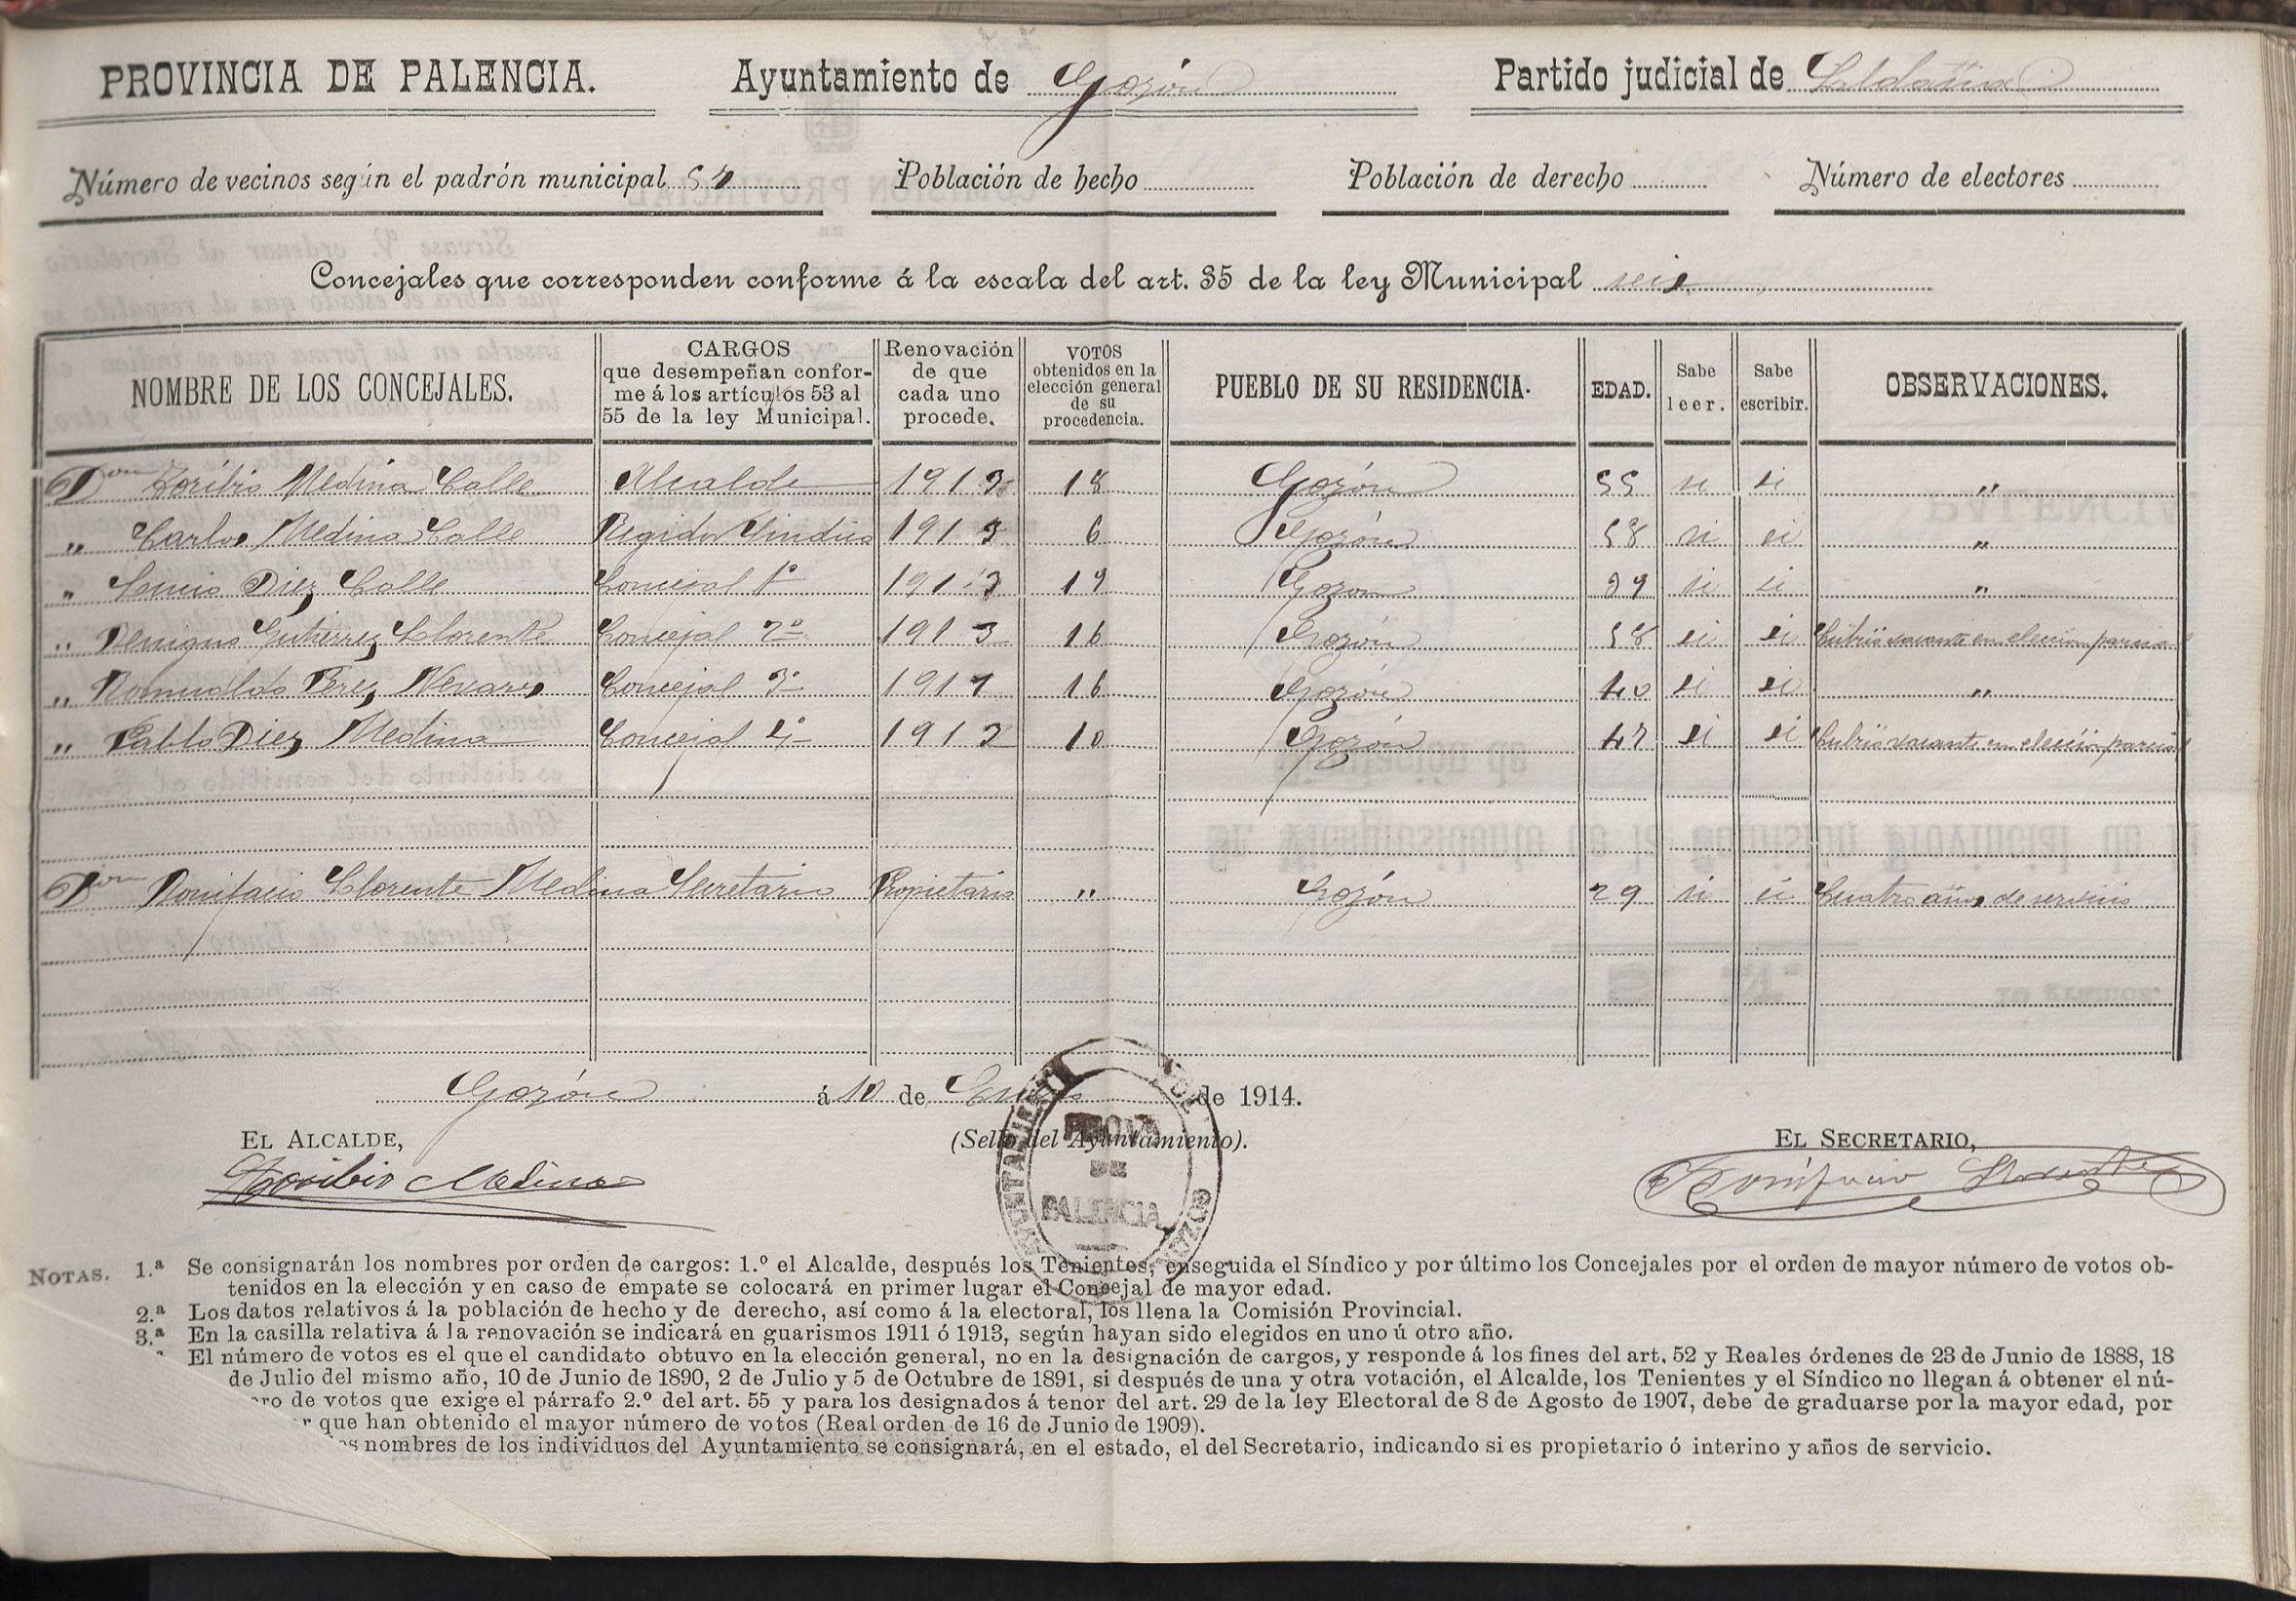 PROVINCIA DE PALENCIA. Ayuntamiento de Gozón Partido judicial de Saldaña
Número de vecinos según el padrón municipal 52 Población de hecho Población de derecho Número de electores
Concejales que corresponden conforme á la escala del art. 35 de la ley Municipal seis
NOMBRE DE LOS CONCEJALES. CARGOS que desempeñan conforme á los artículos 53 al 55 de la ley Municipal. Renovación de que cada uno procede. VOTOS obtenidos en la elección general de su procedencia. PUEBLO DE SU RESIDENCIA. EDAD. Sabe leer. Sabe escribir. OBSERVACIONES.
Don Toribio Medina Calle Alcalde 1913 18 Gozón 55 si si "
" Carlos Medina Calle Regidor Síndico 1913 6 Gozón 58 si si "
" Lucio Diez Calle Concejal 1º 1913 19 Gozón 39 si si "
" Benigno Gutierrez Llorente Concejal 2º 1913 16 Gozón 58 si si Cubrió vacante en elección parcial
" Romualdo Perez Nevares Concejal 3º 1911 16 Gozón 40 si si "
" Pablo Diez Medina Concejal 4º 1913 10 Gozón 42 si si Cubrió vacante en elección parcial
Don Bonifacio Llorente Medina Secretario Propietario " Gozón 29 si si Cuatro años de servicio
Gozón á 10 de Enero de 1914.
EL ALCALDE, (Sello del Ayuntamiento). EL SECRETARIO,
Toribio Medina Bonifacio Llorente
AYUNTAMIENTO DE GOZÓN
PROVA
DE
PALENCIA
NOTAS. 1.ª Se consignarán los nombres por orden de cargos: 1.º el Alcalde, después los Tenientes, enseguida el Síndico y por último los Concejales por el orden de mayor número de votos ob-
tenidos en la elección y en caso de empate se colocará en primer lugar el Concejal de mayor edad.
2.ª Los datos relativos á la población de hecho y de derecho, así como á la electoral, los llena la Comisión Provincial.
3.ª En la casilla relativa á la renovación se indicará en guarismos 1911 ó 1913, según hayan sido elegidos en uno ú otro año.
El número de votos es el que el candidato obtuvo en la elección general, no en la designación de cargos, y responde á los fines del art. 52 y Reales órdenes de 23 de Junio de 1888, 18
de Julio del mismo año, 10 de Junio de 1890, 2 de Julio y 5 de Octubre de 1891, si después de una y otra votación, el Alcalde, los Tenientes y el Síndico no llegan á obtener el nú-
ro de votos que exige el párrafo 2.º del art. 55 y para los designados á tenor del art. 29 de la ley Electoral de 8 de Agosto de 1907, debe de graduarse por la mayor edad, por
r que han obtenido el mayor número de votos (Real orden de 16 de Junio de 1909).
os nombres de los individuos del Ayuntamiento se consignará, en el estado, el del Secretario, indicando si es propietario ó interino y años de servicio.